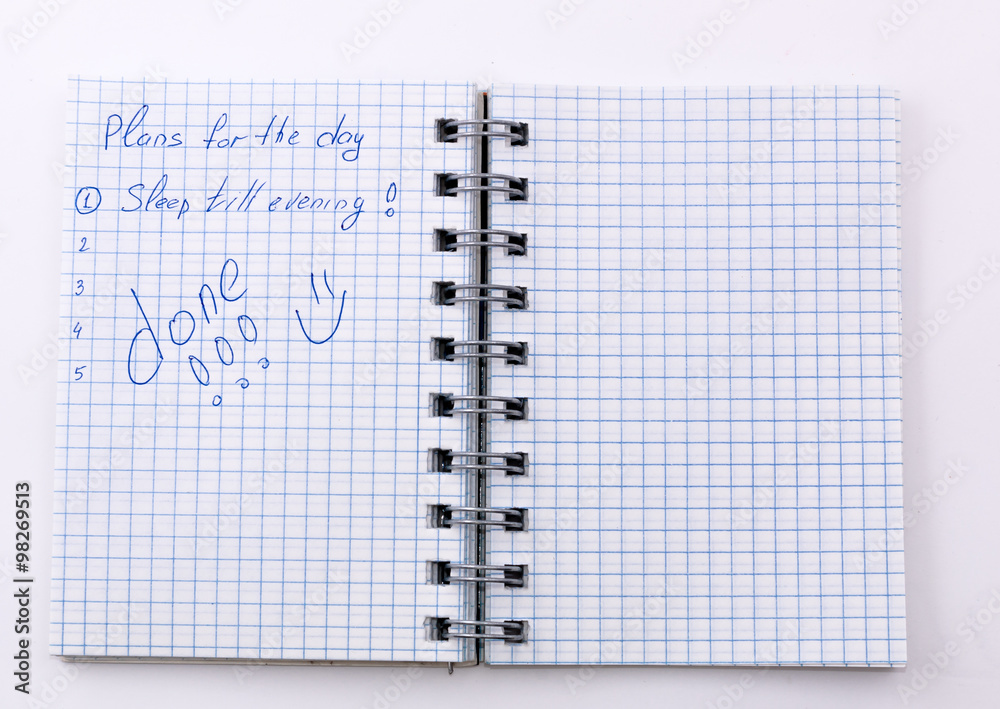 Plans for the day
1 Sleep till evening!
2
3
4
5
done!!!
Adobe Stock | #98269513